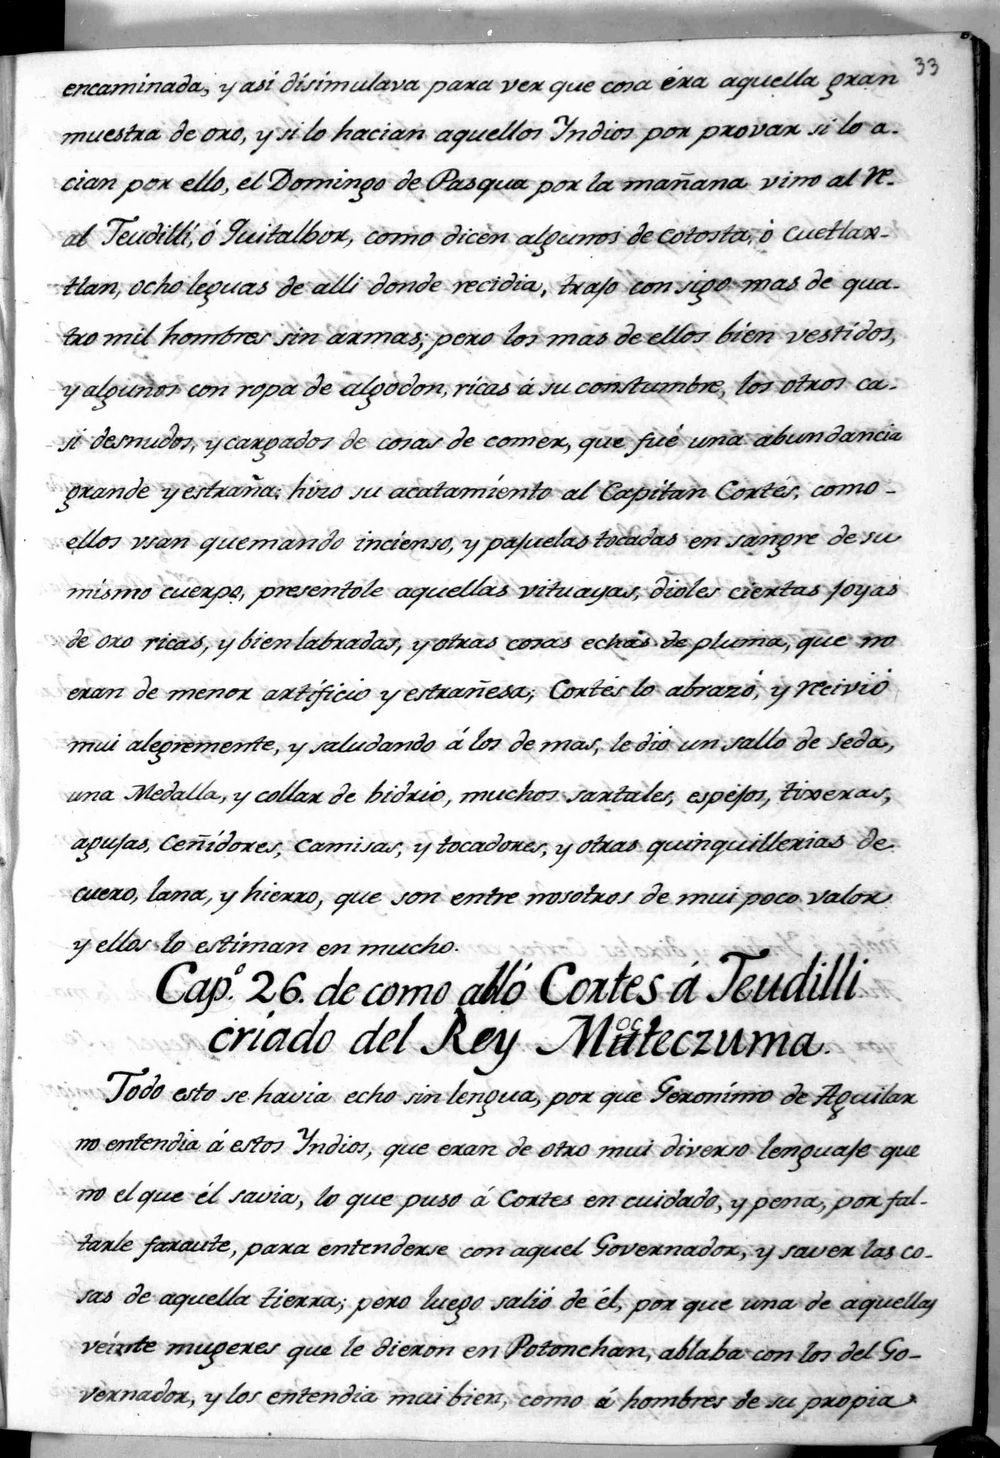 33
encaminada, y asi disimulava para ver que cosa éra aquella gran
muestra de oro, y si lo hacian aquellos Yndios por provar si lo a-
cian por ello, el Domingo de Pasqua por la mañana vino al Re-
al Teudilli, ó Quitalbor, como dicen algunos de cotosta, ò cuetlax-
tlan, ocho leguas de alli donde recidia, trajo con sigo mas de qua-
tro mil hombres sin armas; pero los mas de ellos bien vestidos,
y algunos con ropa de algodon, ricas á su constumbre, los otros ca-
si desnudos, y cargados de cosas de comer, que fué una abundancia
grande y estraña; hizo su acatamiento al Capitan Cortés, como-
ellos vsan quemando incienso, y pajuelas tocadas en sangre de su
mismo cuerpo, presentole aquellas vituayas, dioles ciertas joyas
de oro ricas, y bien labradas, y otras cosas echas de pluma, que no
eran de menor artificio y estrañesa; Cortés lo abrazó, y recivió
mui alegremente, y saludando á los demas, le dio un sallo de seda,
una Medalla, y collar de bidrio, muchos sartales, espejos, tixeras,
agujas, ceñidores, camisas, y tocadores, y otras quinquillerias de
cuero, lana, y hierro, que son entre nosotros de mui poco valor
y ellos lo estiman en mucho.
Cap.º 26. de como abló Cortes á Teudilli
criado del Rey Moteczuma.
Todo esto se havia echo sin lengua, por que Geronimo de Aguilar
no entendia á estos Yndios, que eran de otro mui diverso lenguaje que
no el que él savia, lo que puso á Cortes en cuidado, y pena, por fal-
tarle faraute, para entenderse con aquel Governador, y saver las co-
sas de aquella tierra; pero luego salió de él, por que una de aquellas
veinte mugeres que le dieron en Potonchan, ablaba con los del Go-
vernador, y los entendia mui bien, como á hombres de su propia